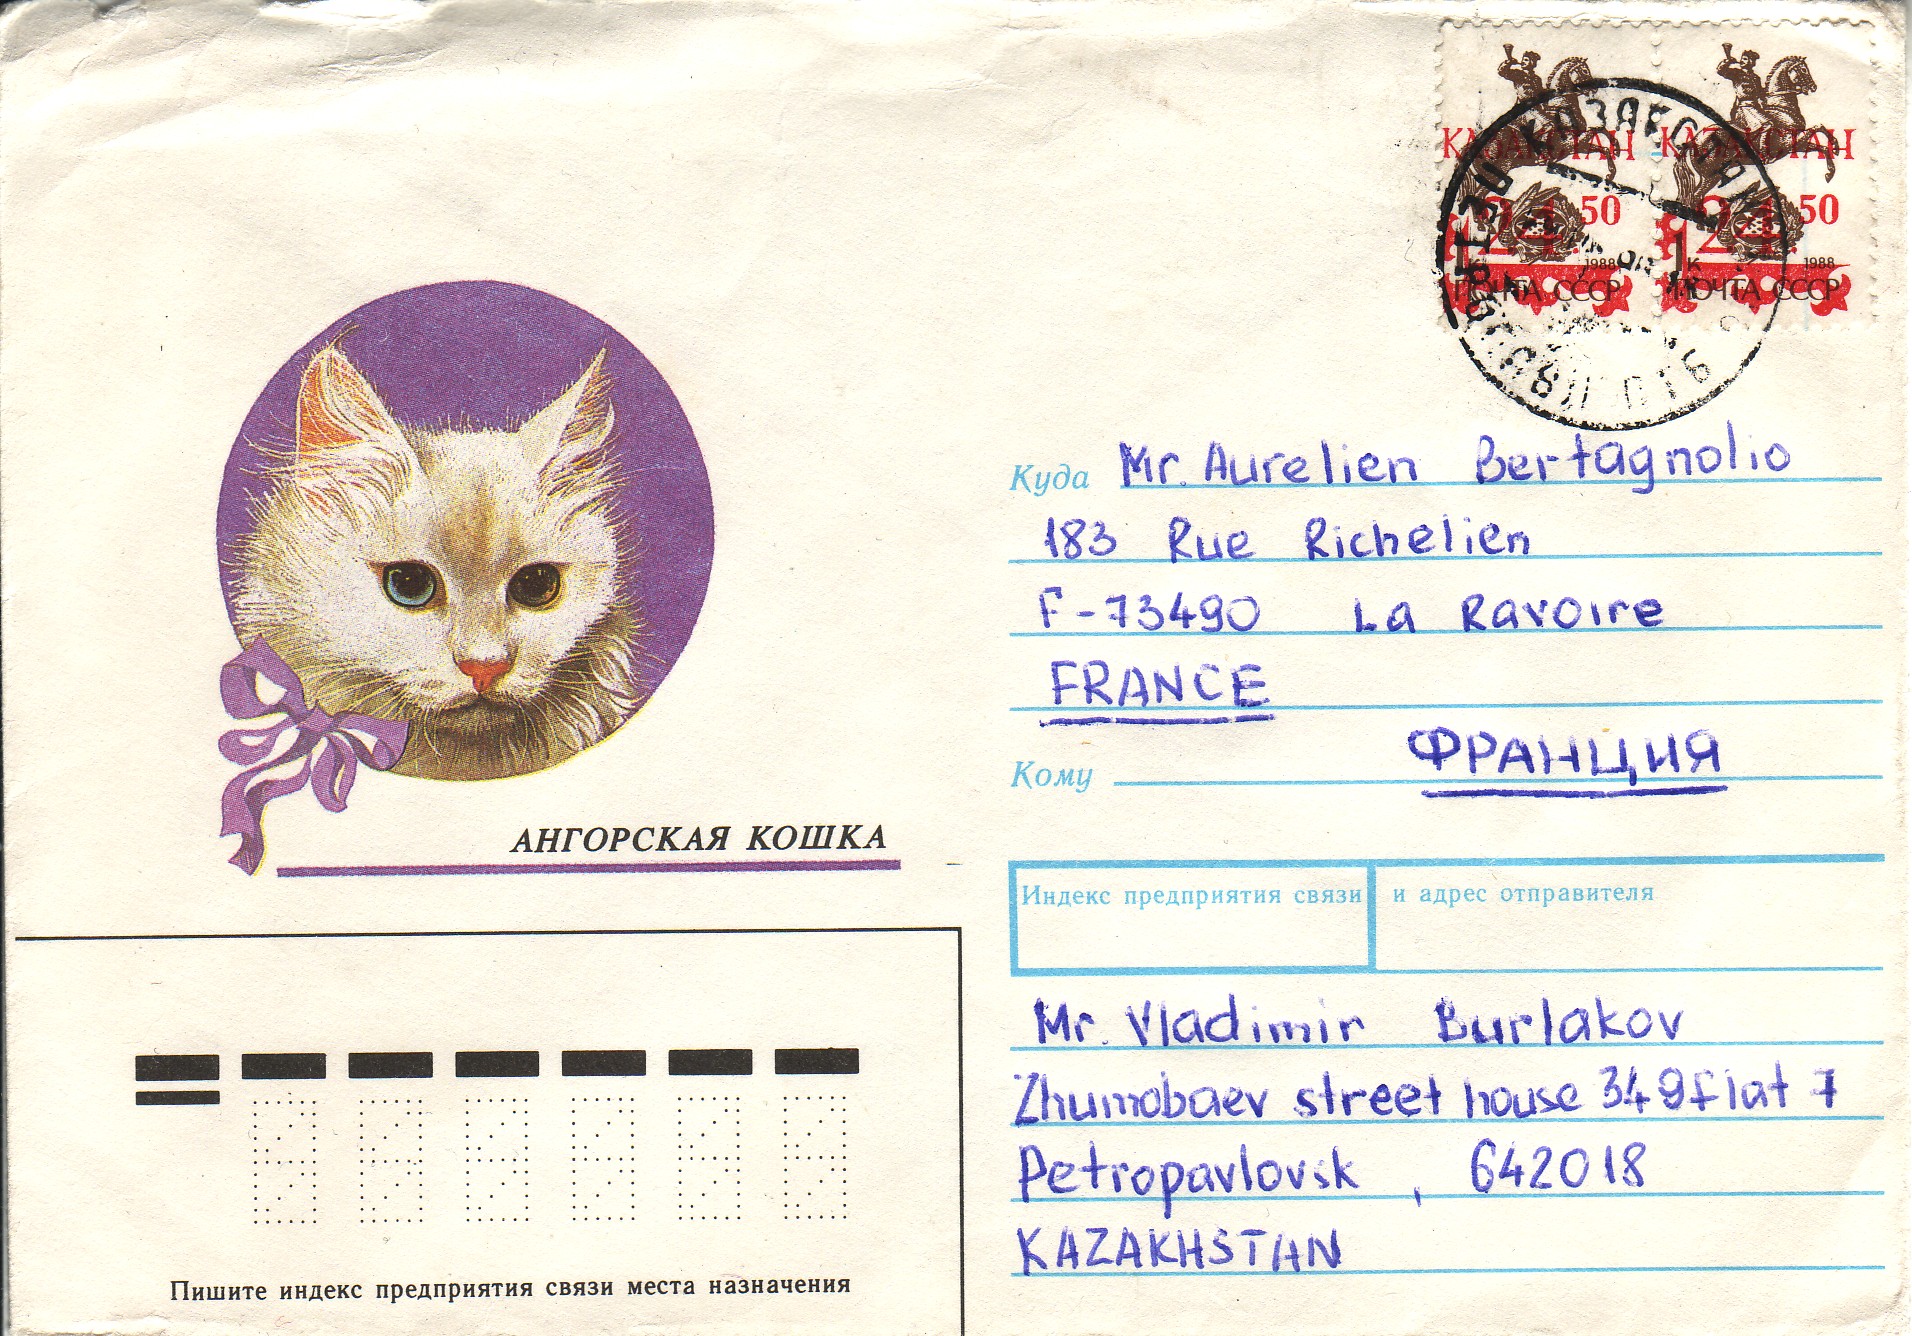 КАЗАКСТАН КАЗАКСТАН
24.50 24.50
1к 1988 1к 1988
ПОЧТА СССР ПОЧТА СССР
Куда Mr. Aurelien Bertagnolio
183 Rue Richelien
F-73490 La Ravoire
FRANCE
ФРАНЦИЯ
Кому
АНГОРСКАЯ КОШКА
Индекс предприятия связи и адрес отправителя
Mr. Vladimir Burlakov
Zhumobaev street house 349 flat 7
Petropavlovsk, 642018
KAZAKHSTAN
Пишите индекс предприятия связи места назначения